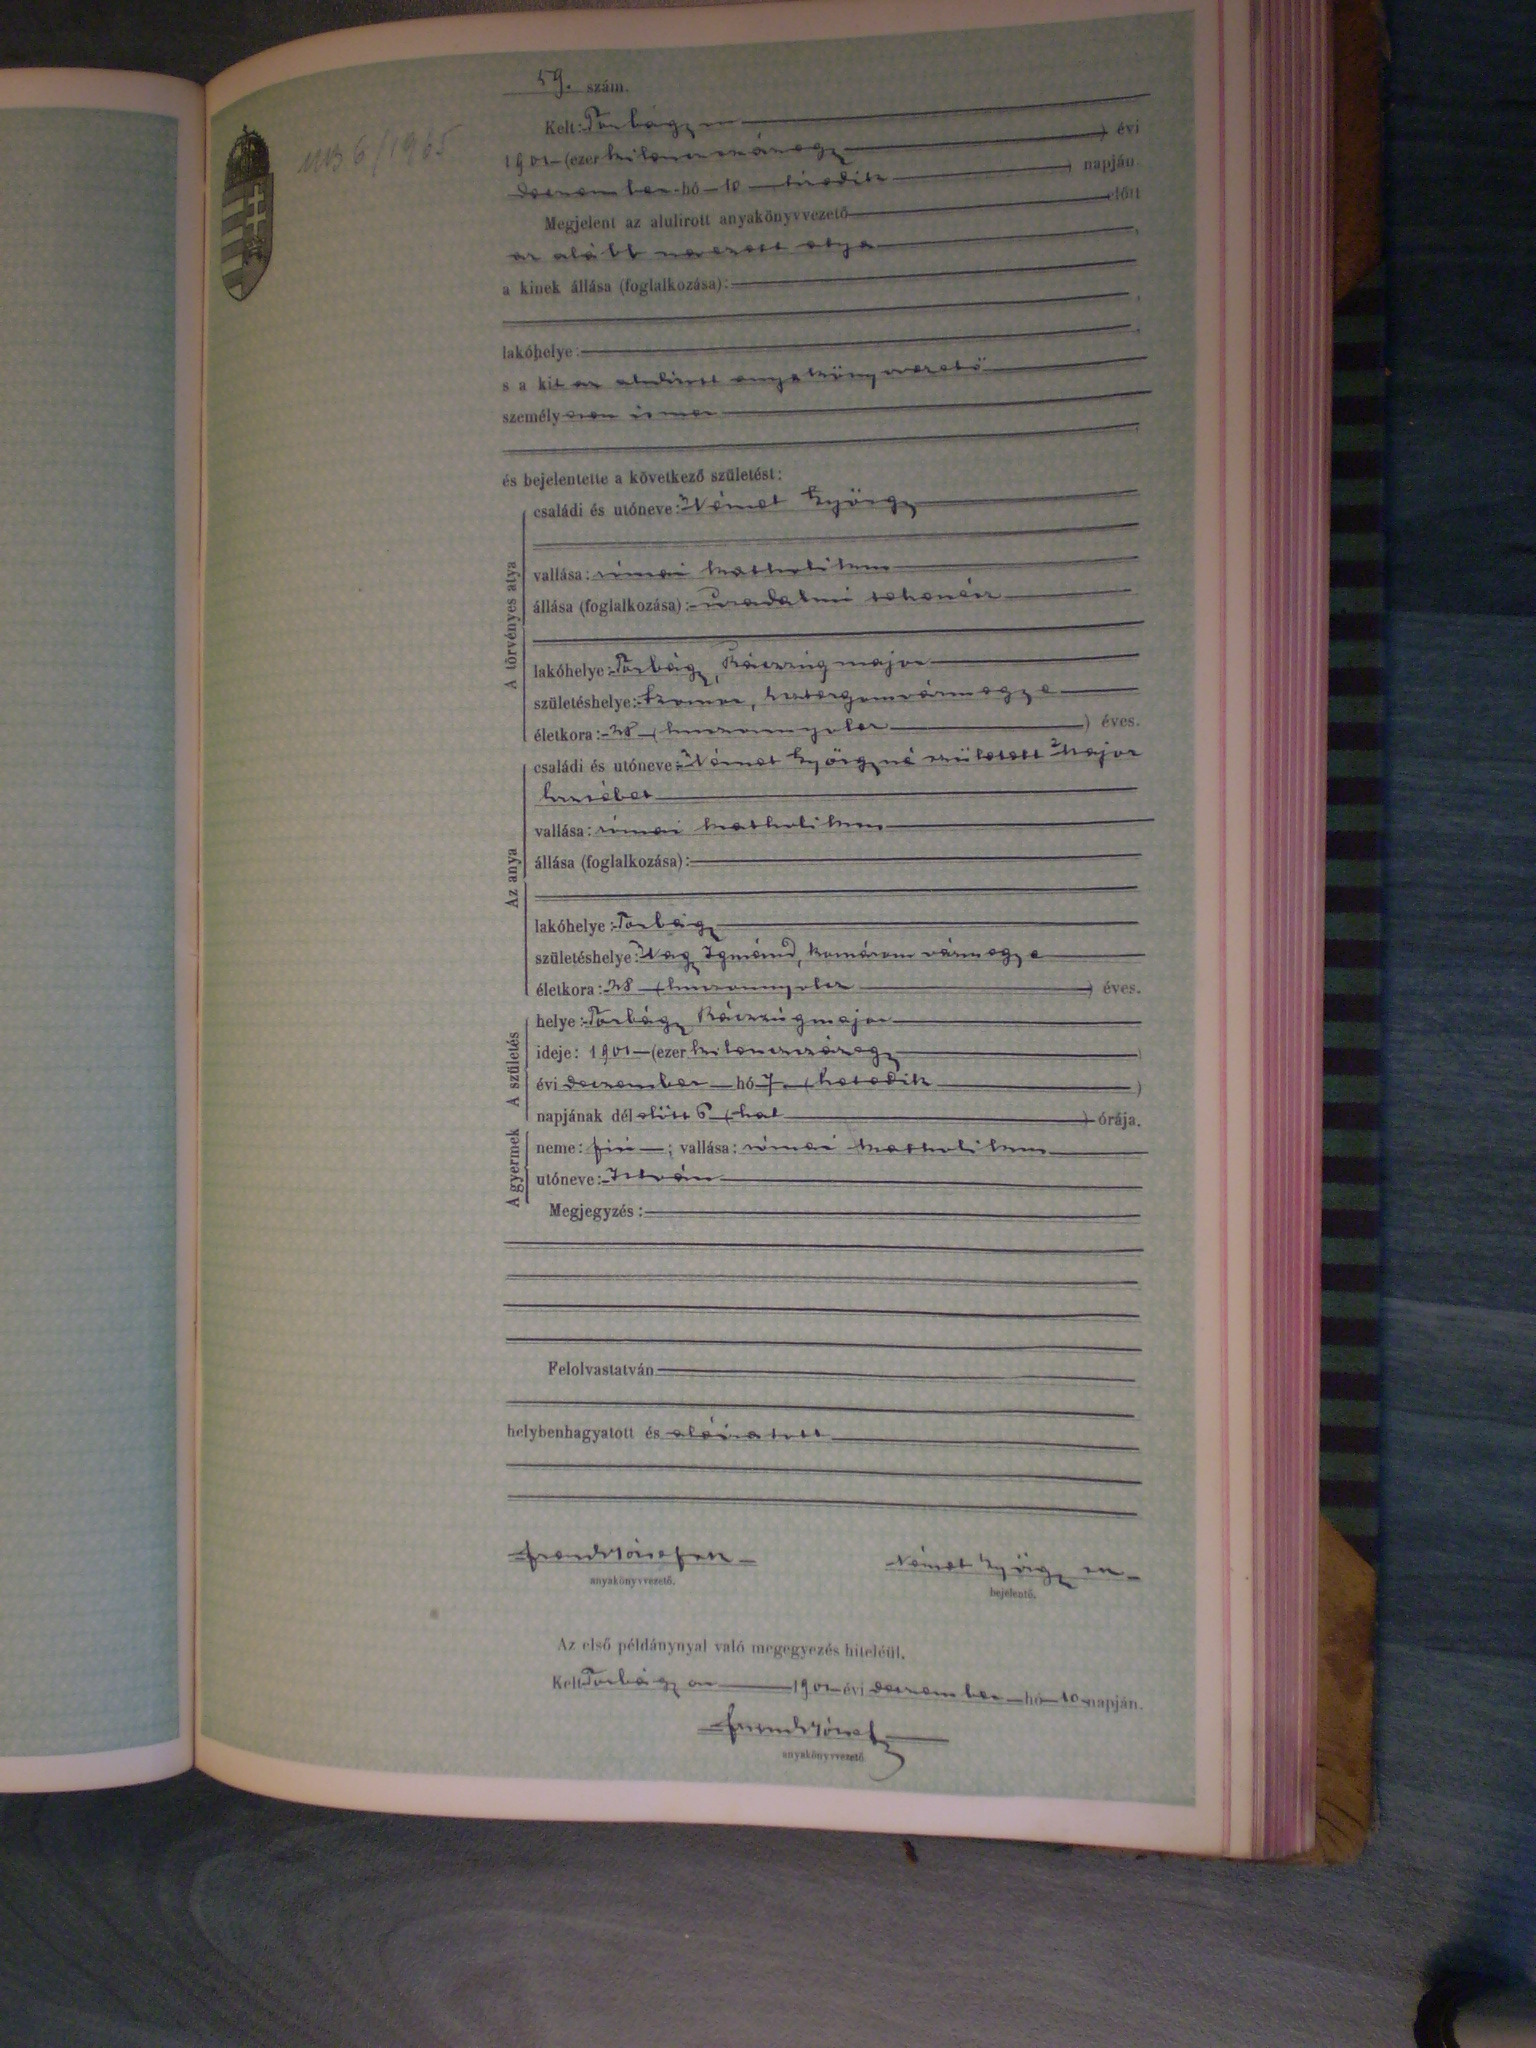 59. szám.
Kelt: Torbágyon
1901 (ezer kilenczszázegy ) évi
deczember hó 10 tizedik ) napján
Megjelent az alulirott anyakönyvvezető előtt
az alább nevezett atya ,
a kinek állása (foglalkozása):
lakóhelye:
s a kit az alulirott anyakönyvvezető
személyesen ismer
és bejelentette a következő születést:
A törvényes atya
családi és utóneve: Német György
vallása: római katholikus
állása (foglalkozása): uradalmi tehenész
lakóhelye: Torbágy, Ráczzúgmajor
születéshelye: Szomor, Esztergomvármegye
életkora: 28 (huszonnyolcz ) éves.
Az anya
családi és utóneve: Német Györgyné született Major
Erzsébet
vallása: római katholikus
állása (foglalkozása):
lakóhelye: Torbágy
születéshelye: Nagy Igmánd, Komárom vármegye
életkora: 28 (huszonnyolcz ) éves.
A születés
helye: Torbágy Ráczzúgmajor
ideje: 1901 (ezer kilenczszázegy )
évi deczember hó 7. (hetedik )
napjának dél előtt 6 (hat ) órája.
A gyermek
neme: fiú ; vallása: római katholikus
utóneve: István
Megjegyzés:
Felolvastatván
helybenhagyatott és aláiratott
anyakönyvvezető.
Német György
bejelentő.
Az első példánynyal való megegyezés hiteléül.
Kelt Torbágyon 1901 évi deczember hó 10 napján.
anyakönyvvezető